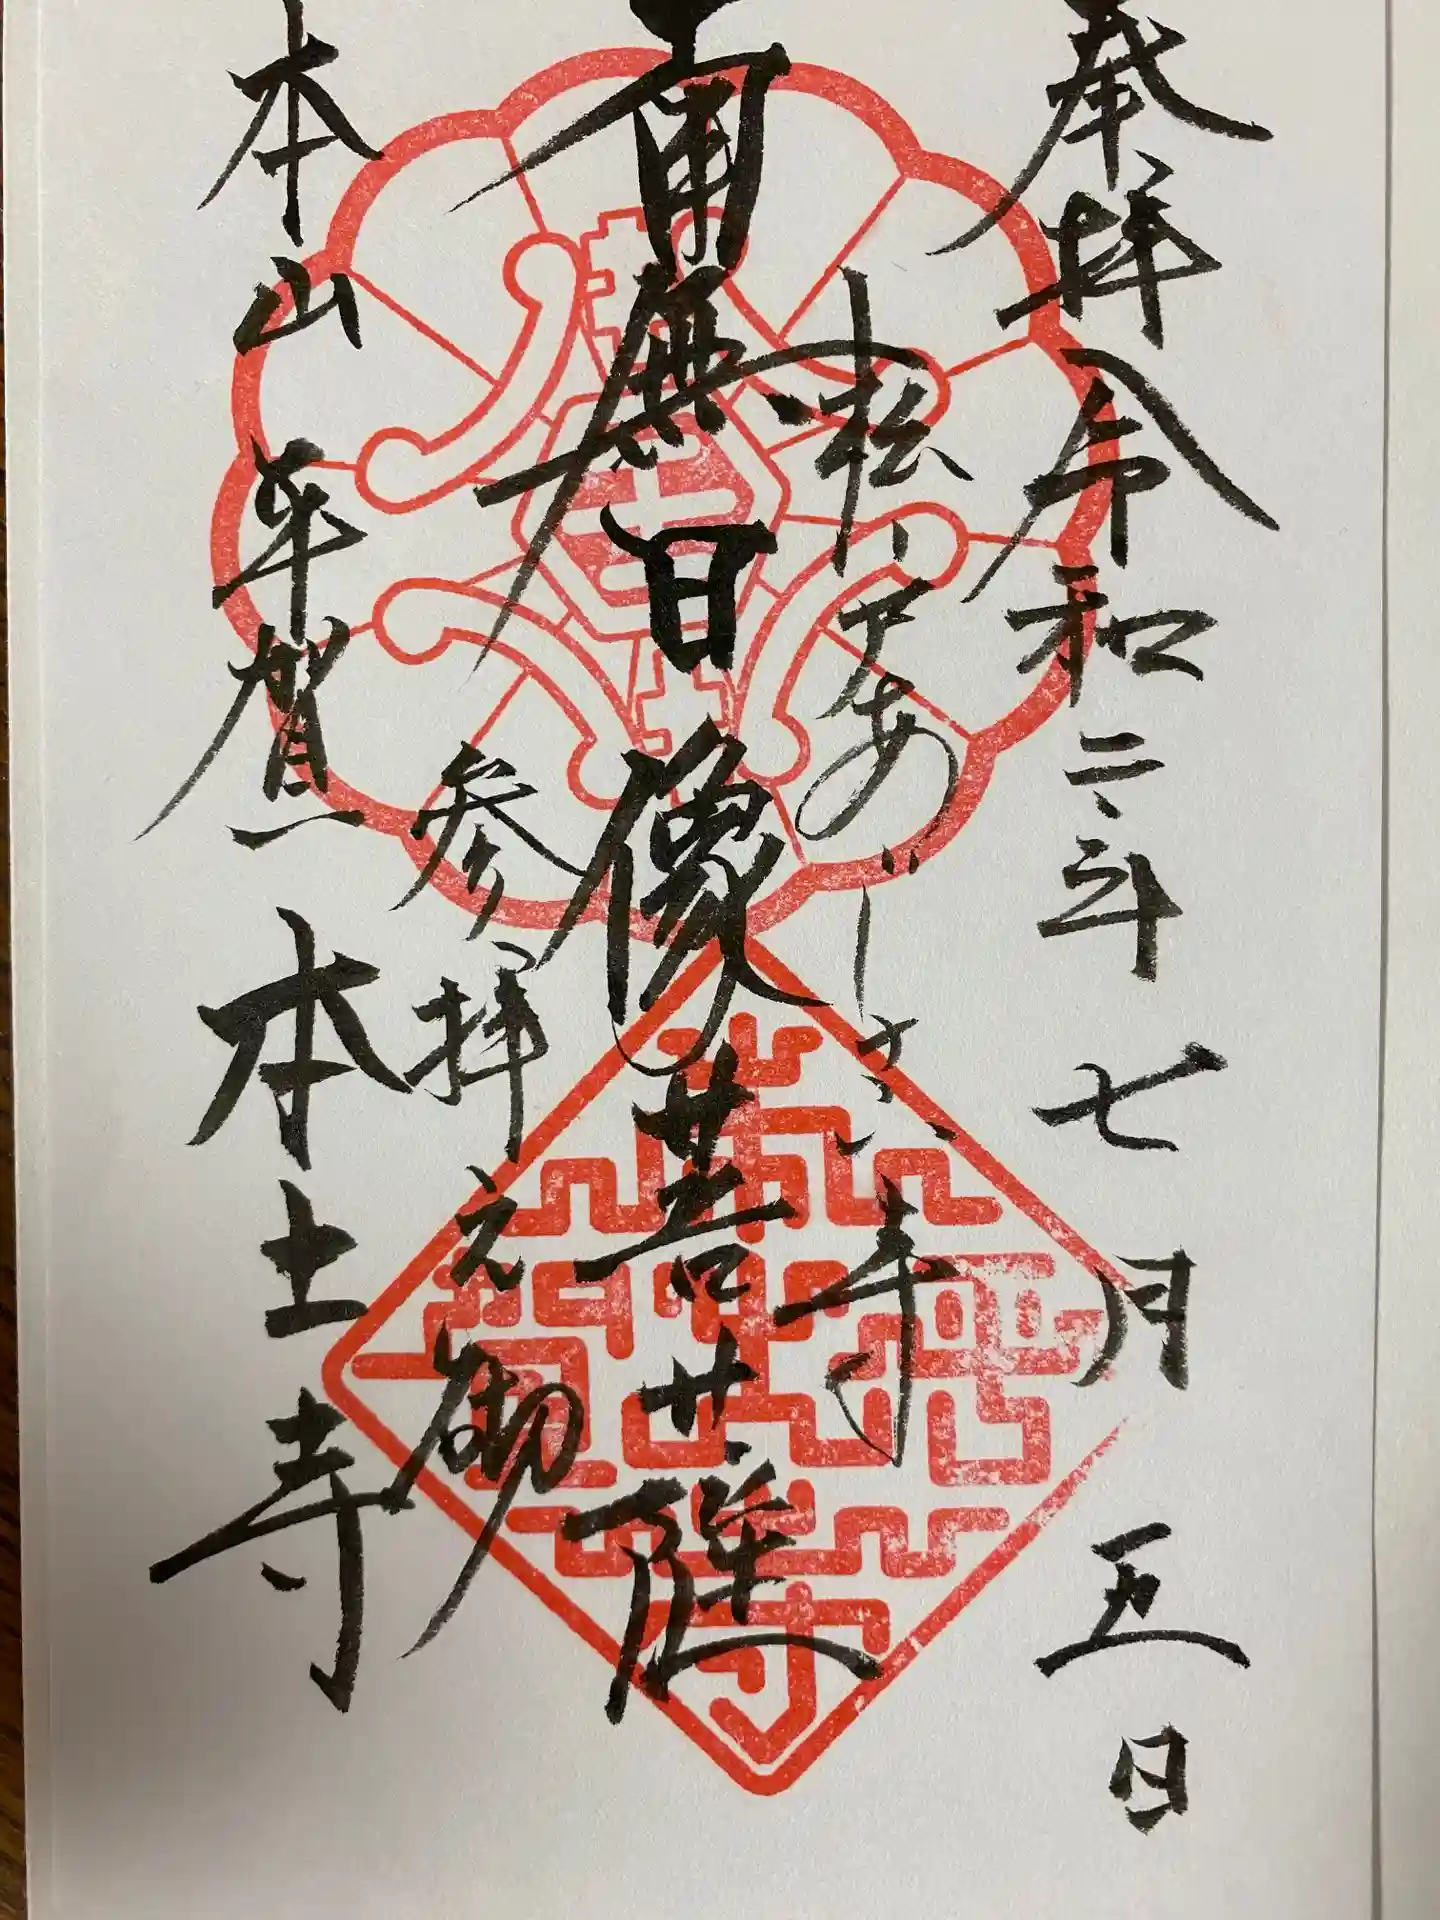 奉拝 令和二年七月五日
松戸あじさい寺
南無日像菩薩
参拝之砌
本山 平賀 本土寺